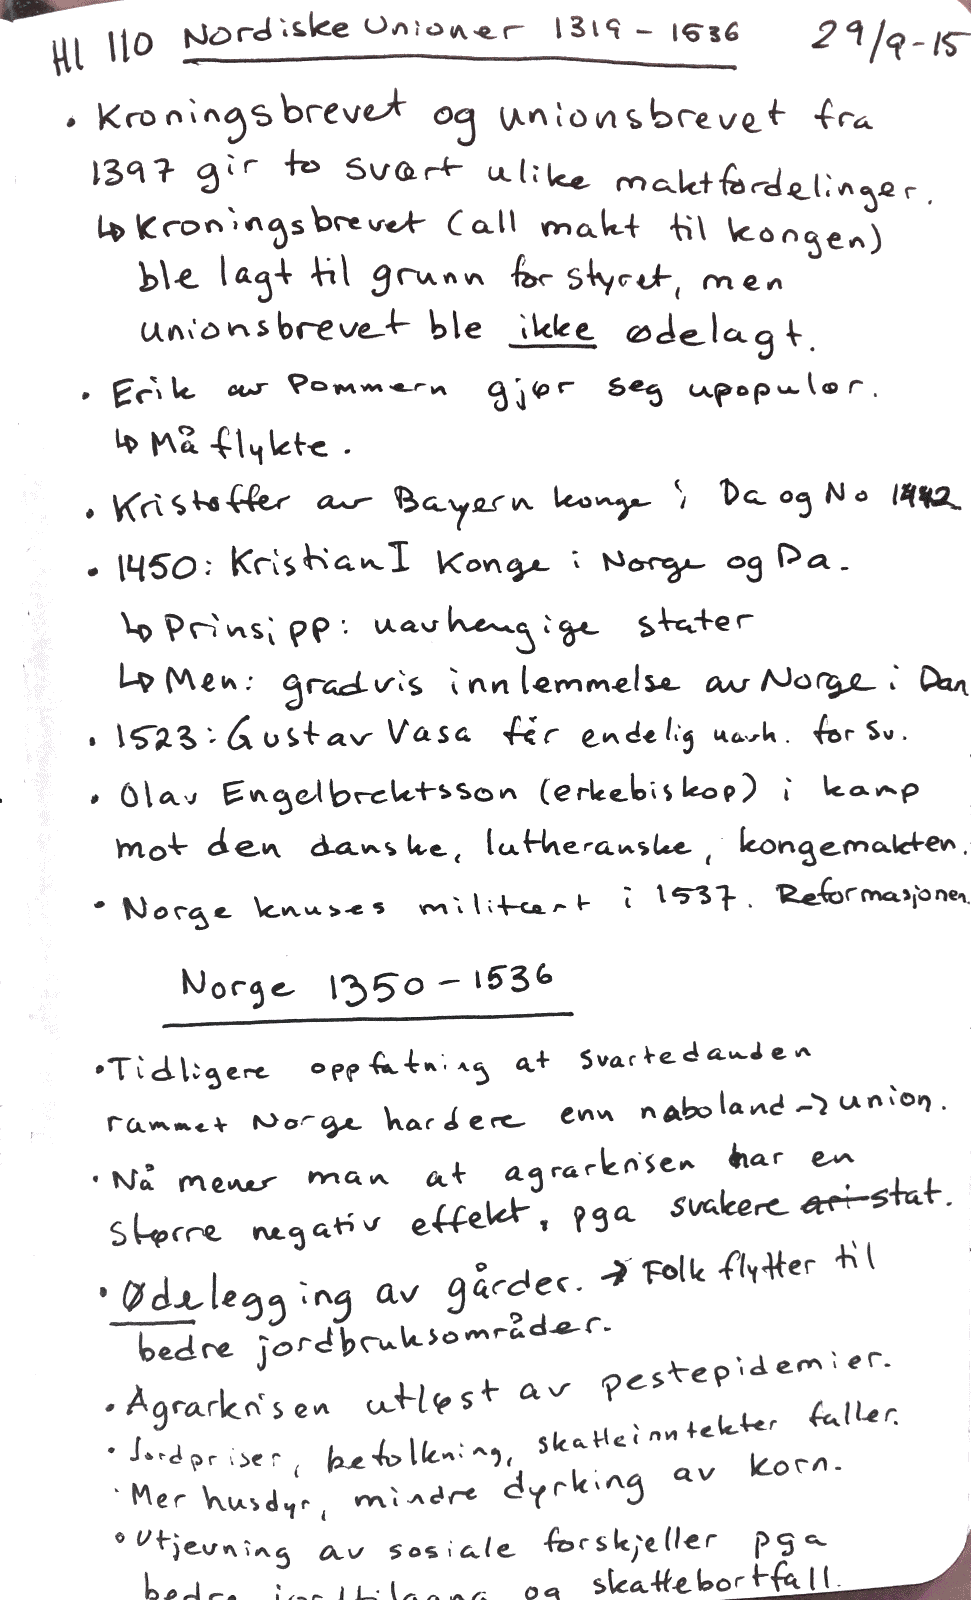 HI 110 Nordiske Unioner 1319 - 1536 29/9-15
• Kroningsbrevet og unionsbrevet fra
1397 gir to svært ulike maktfordelinger.
↳ Kroningsbrevet (all makt til kongen)
ble lagt til grunn for styret, men
unionsbrevet ble ikke ødelagt.
• Erik av Pommern gjør seg upopulær.
↳ Må flykte.
• Kristoffer av Bayern konge i Da og No 1442
• 1450: Kristian I Konge i Norge og Da.
↳ Prinsipp: uavhengige stater
↳ Men: gradvis innlemmelse av Norge i Dan
• 1523: Gustav Vasa får endelig uavh. for Sv.
• Olav Engelbrektsson (erkebiskop) i kamp
mot den danske, lutheranske, kongemakten.
• Norge knuses militært i 1537. Reformasjonen.
Norge 1350 - 1536
• Tidligere oppfatning at svartedauden
rammet Norge hardere enn naboland → union.
• Nå mener man at agrarkrisen har en
større negativ effekt, pga svakere stat.
• Ødelegging av gårder. → Folk flytter til
bedre jordbruksområder.
• Agrarkrisen utløst av pestepidemier.
• Jordpriser, befolkning, skatteinntekter faller.
• Mer husdyr, mindre dyrking av korn.
• Utjevning av sosiale forskjeller pga
bedre jordtilgang og skattebortfall.